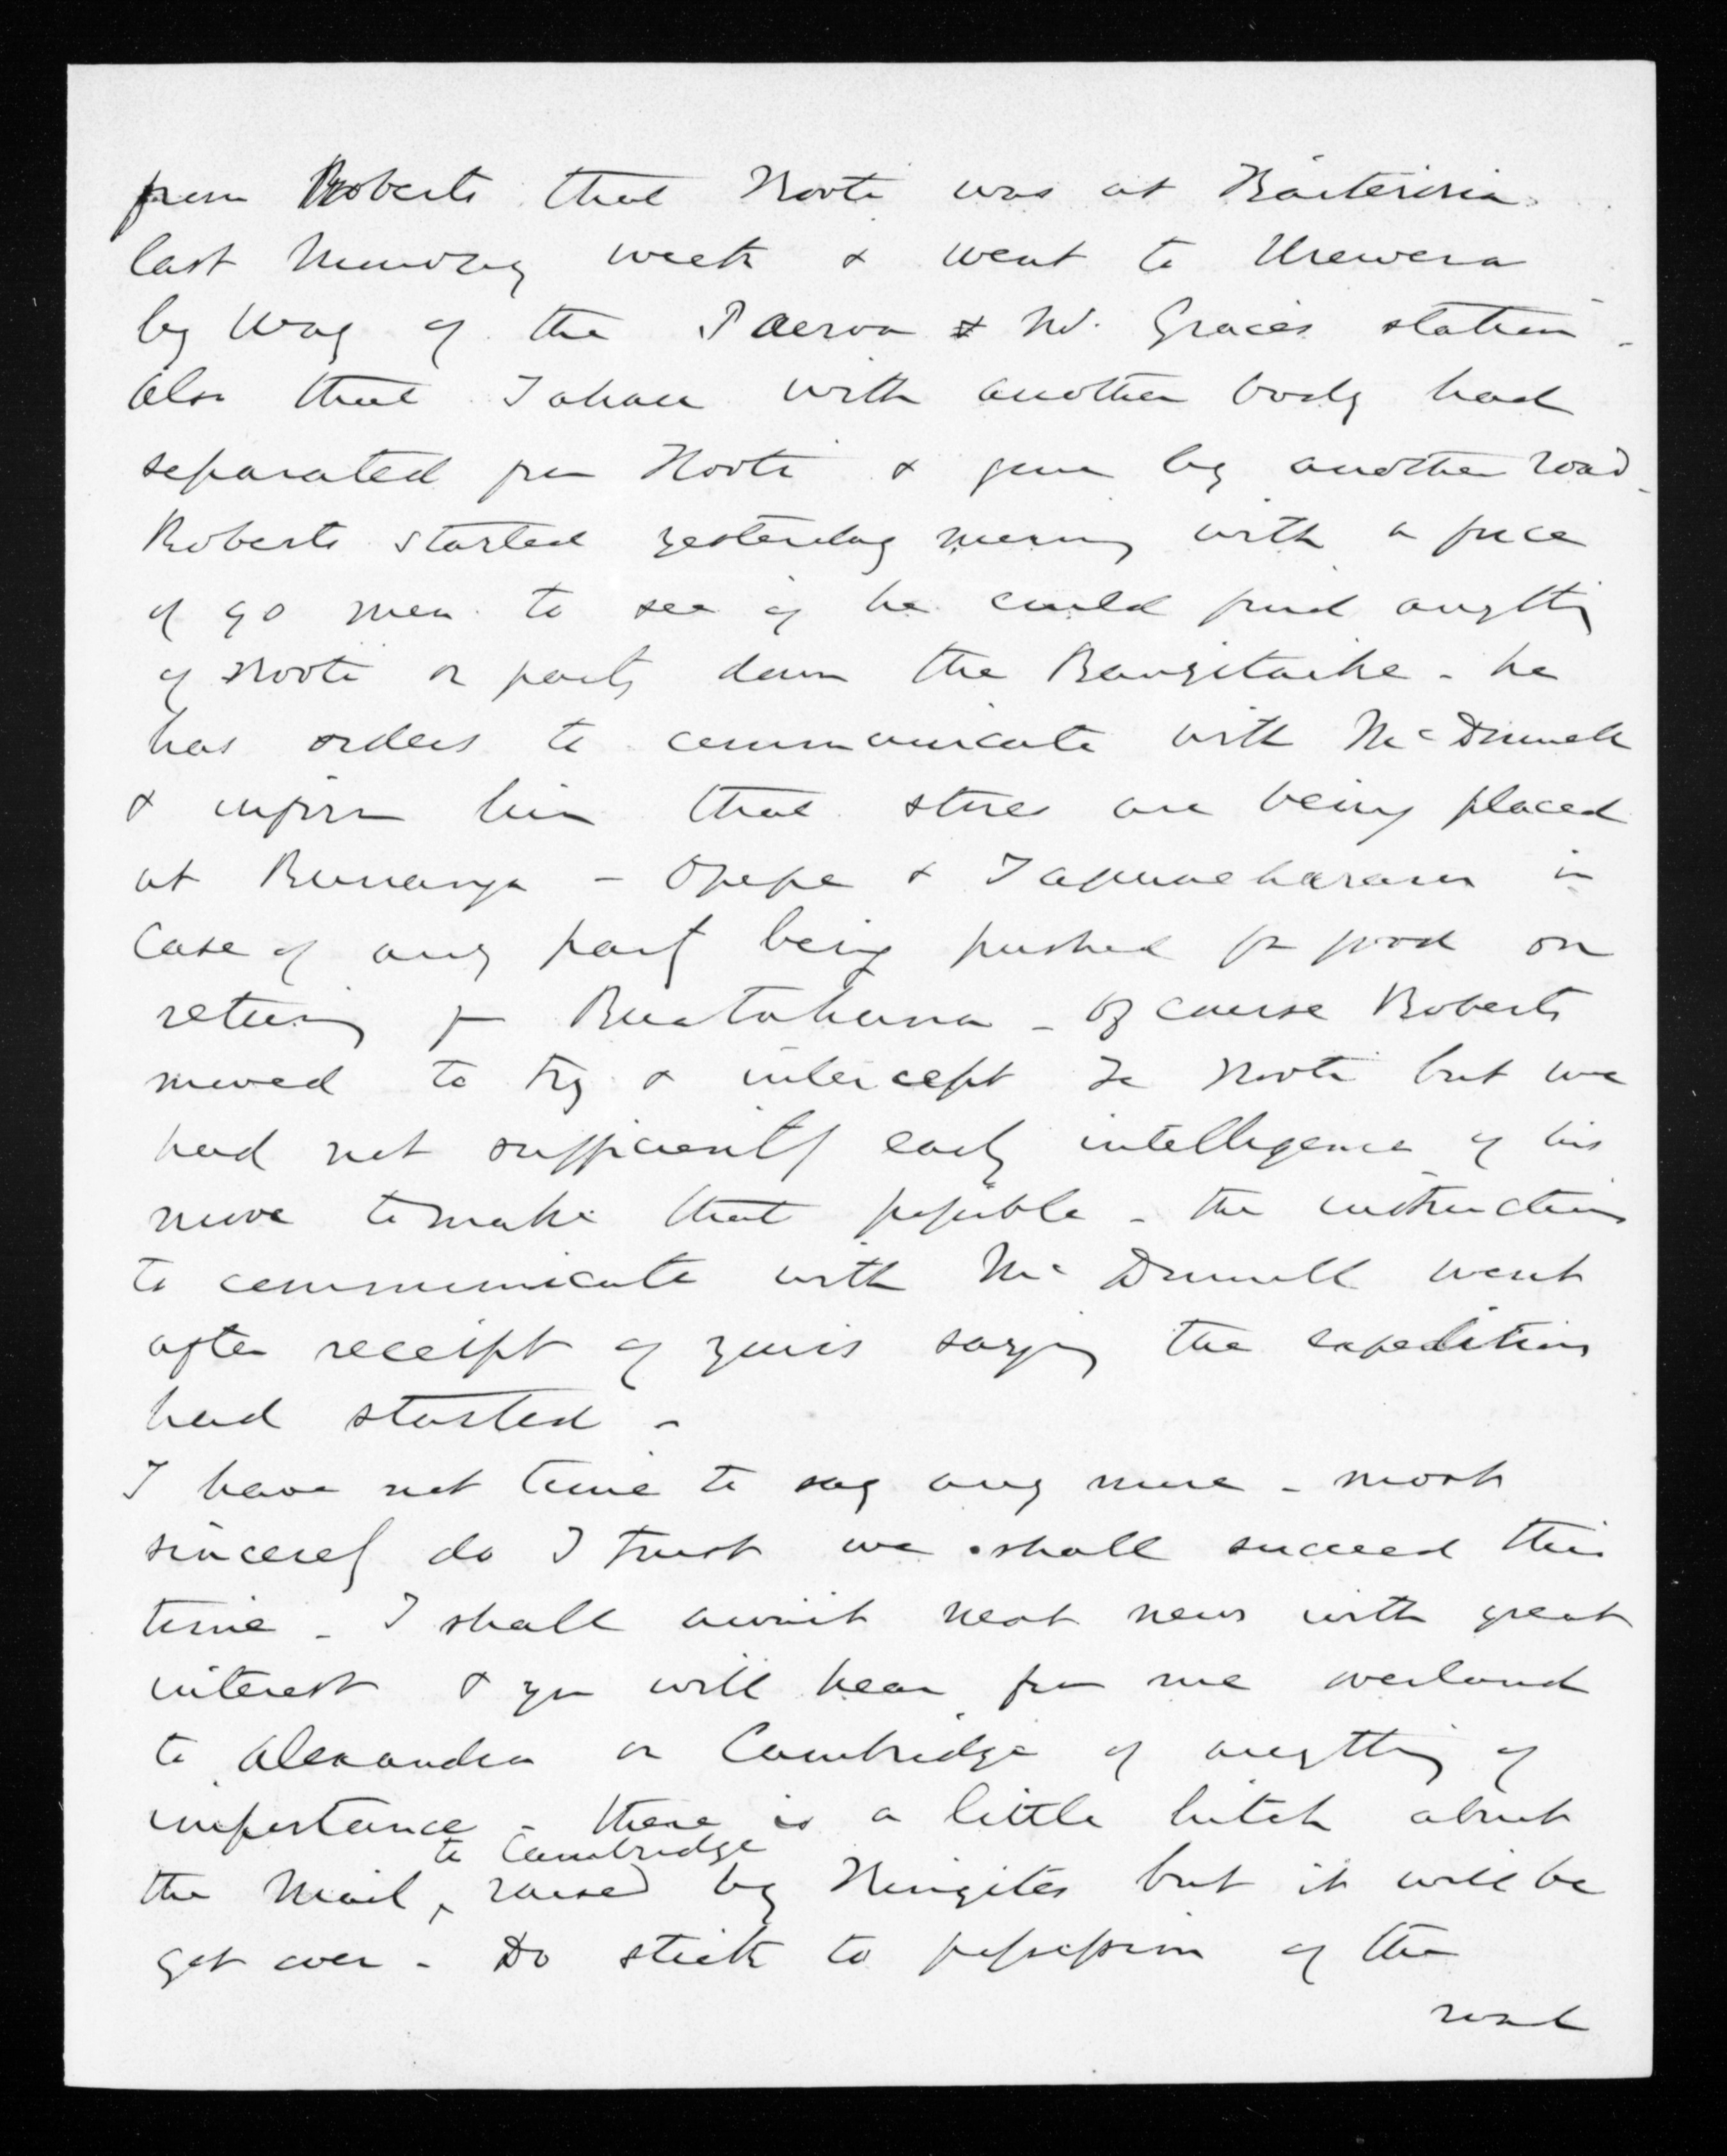 from Roberts that Kooti was at Waiteriria
last Monday week & went to Urewera
by way of the Paeroa & Mr. Graces station -
also that Tahau with another body had
separated from Kooti & gone by another road -
Roberts started yesterday morning with a force
of 90 men to see if he could find anything
of Kooti or party down the Rangitaiki - he
has orders to communicate with McDonnell
& inform him that stores are being placed
at Runanga - Opepe & Tapuaeharuru in
case of any party being pushed for food on
returning from Ruatahuna - Of course Roberts
moved to try & intercept Te Kooti but we
had not sufficiently early intelligence of his
move to make that possible - the instructions
to communicate with McDonnell went
after receipt of yours saying the expedition
had started -
I have not time to say any more - most
sincerely do I trust we shall succeed this
time - I shall await next news with great
interest & you will hear from me overland
to Alexandra or Cambridge of anything of
importance - there is a little hitch about
the Mail to Cambridge raised by Kingites but it will be
got over - Do stick to possession of the
road